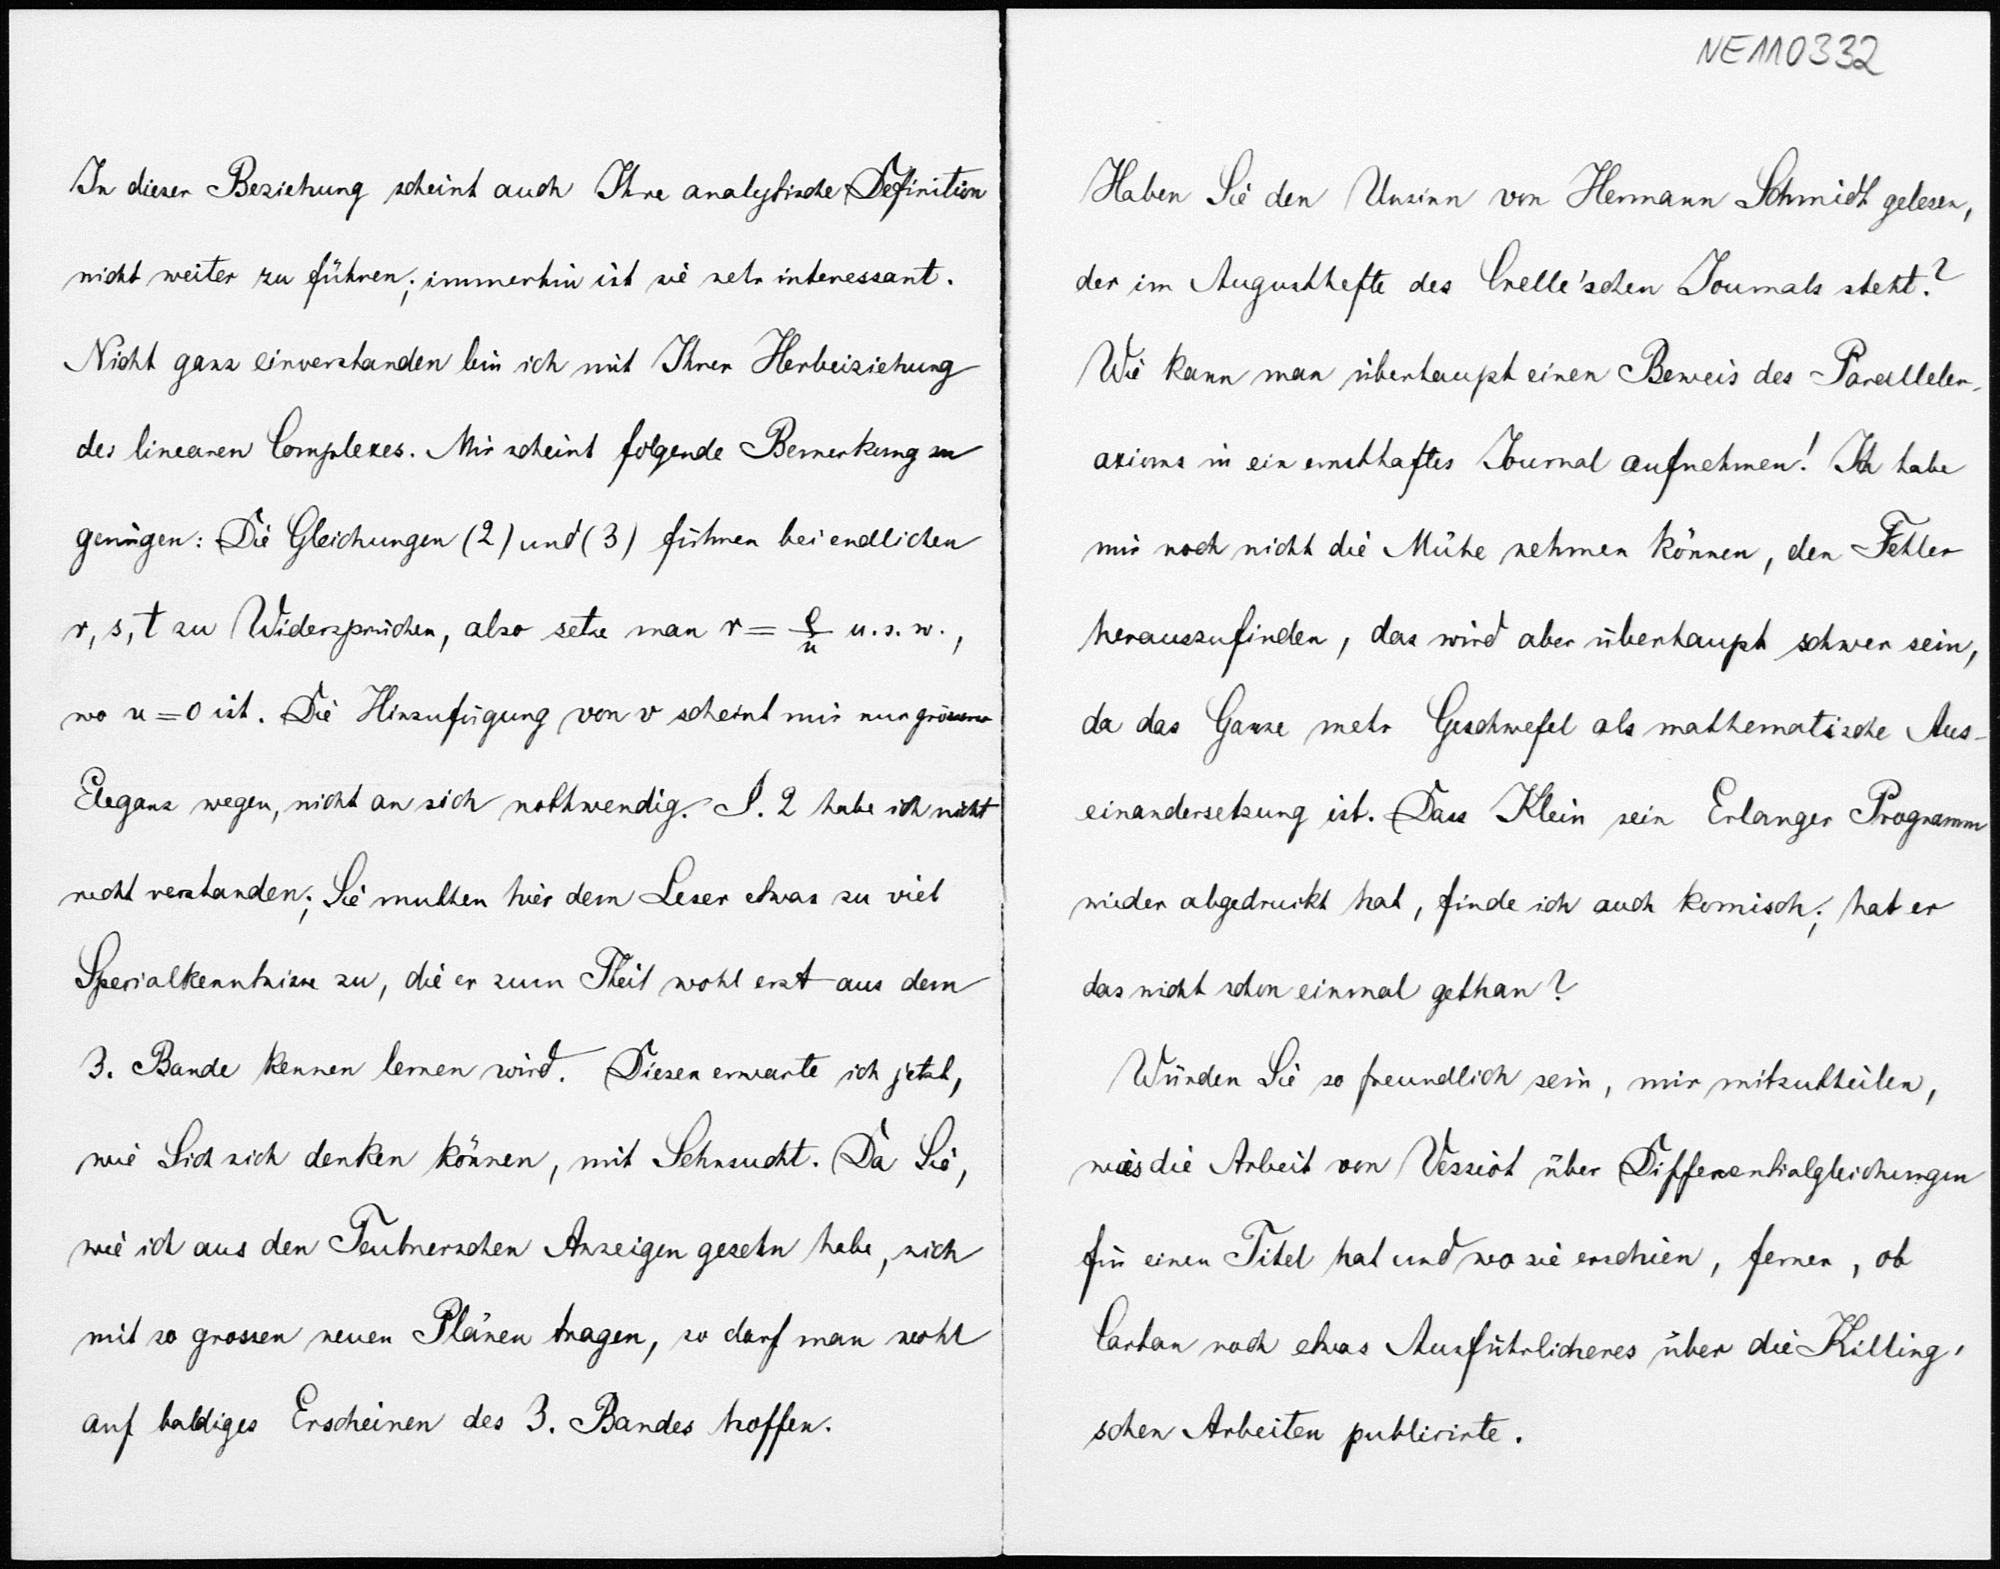 In dieser Beziehung scheint auch Ihre analytische Definition
nicht weiter zu führen; immerhin ist sie sehr interessant.
Nicht ganz einverstanden bin ich mit Ihrer Herbeiziehung
des linearen Complexes. Mir scheint folgende Bemerkung zu
genügen: Die Gleichungen (2) und (3) führen bei endlichen
r, s, t zu Widersprüchen, also setze man r = ϱ/u u.s.w.,
wo u = 0 ist. Die Hinzufügung von v scheint mir nur grösserer
Eleganz wegen, nicht an sich nothwendig. S. 2 habe ich nicht
recht verstanden; Sie muthen hier dem Leser etwas zu viel
Specialkenntnisse zu, die er zum Theil wohl erst aus dem
3. Bande kennen lernen wird. Diesen erwarte ich jetzt,
wie Sich sich denken können, mit Sehnsucht. Da Sie,
wie ich aus den Teubnerschen Anzeigen gesehn habe, sich
mit so grossen neuen Plänen tragen, so darf man wohl
auf baldiges Erscheinen des 3. Bandes hoffen.
NE110332
Haben Sie den Unsinn von Hermann Schmidt gelesen,
der im Augusthefte des Crelle'schen Journals steht?
Wie kann man überhaupt einen Beweis des Parallelen-
axioms in ein ernsthaftes Journal aufnehmen! Ich habe
mir noch nicht die Mühe nehmen können, den Fehler
herauszufinden, das wird aber überhaupt schwer sein,
da das Ganze mehr Geschwefel als mathematische Aus-
einandersetzung ist. Dass Klein sein Erlanger Programm
wieder abgedruckt hat, finde ich auch komisch; hat er
das nicht schon einmal gethan?
Würden Sie so freundlich sein, mir mitzutheilen,
was die Arbeit von Vessiot über Differentialgleichungen
für einen Titel hat und wo sie erschien, ferner, ob
Cartan noch etwas Ausführlicheres über die Killing'
schen Arbeiten publicirte.